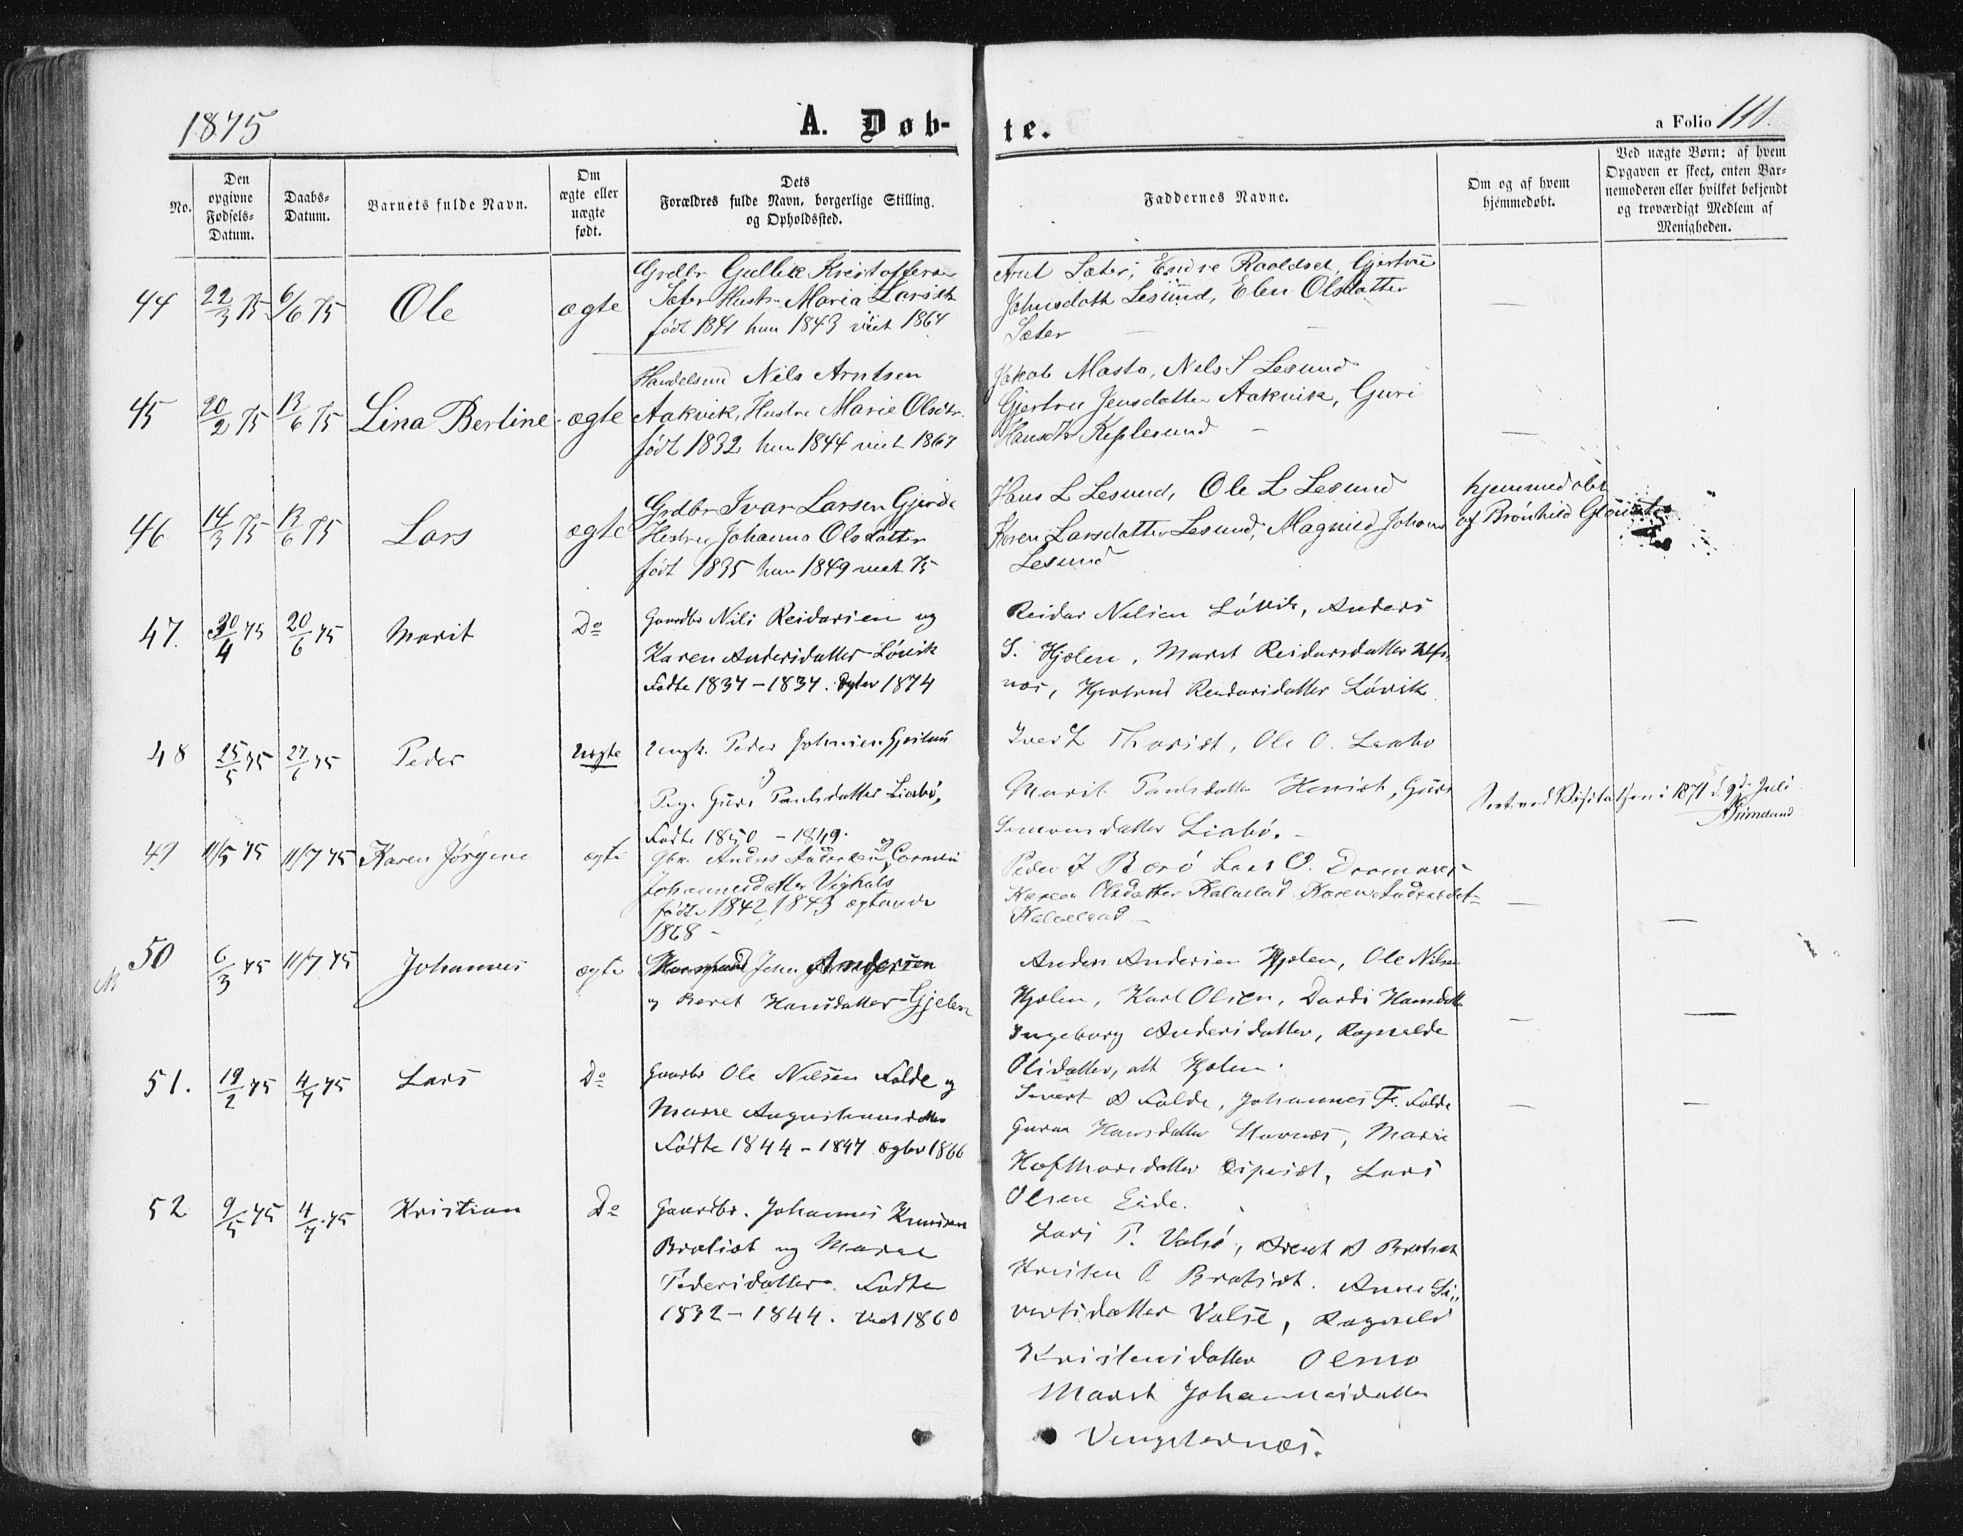 1875
A. Døb-
te.
a Folio 111.
No.
Den
opgivne
Fødsels-
Datum.
Daabs-
Datum.
Barnets fulde Navn.
Om
ægte eller
uægte
født.
Dets
Forældres fulde Navn, borgerlige Stilling.
og Opholdssted.
Faddernes Navne.
Om og af hvem
hjemmedøbt.
Ved uægte Børn: af hvem
Opgaven er skeet, enten Bar-
nemoderen eller hvilket bekjendt
og troværdigt Medlem af
Menigheden.
44 22/3 75 6/6 75 Ole ægte
Grdbr Gullik Kristoffersen
Sæter Hustr. Maria
født 1841 hun 1843 viet 1864
Arnt Sæter, Endre Roaldset, Gjertru
Johnsdatt Lesund, Elen Olsdatter
Sæter —
45 20/2 75 13/6 75 Lina Bertine ægte
Handelsmd Nils Arntsen
Aakvik, Hustru Marie Olsdtr.
født 1832 hun 1844 viet 1867
Jakob Masto, Nels S Lesund
Gjertru Jensdatter Aakvik, Guri
Hansdtr —
46 14/3 75 13/6 75 Lars ægte
Grdbr Ivar Larsen Gjerde
Hustru Johanna Olsdatter
født 1835 hun 1849 viet 75
Hans L Lesund, Ole L Lesund
Karen Larsdatter Lesund, Magnild Johans
Lesund
hjemmedøbt
af Brønhild
47. 30/4 75 20/6 75 Marit Do
Gaardbr Nils Reidarsen og
Karen Andersdatter Løvik
Fødte 1837 – 1837. Egtev 1874
Reidar Nilsen Løvik, Anders
S. Hjelen, Marit Reidarsdatter
næs, Hjertrud Reidarsdatter Løvik
48 25/5 75 27/6 75 Peder Uægte
Ungk. Peder Johnsen
og
Pige Guri Paulsdatter Liabø,
Fødte 1850 – 1849.
Iver L Thorset, Ole O. Liabø
Marit Paulsdatter Henset, Guri
Simonsdatter Liabø. –
Seet ved Visitatsen i 1875 d. 9de Juli
49 11/5 75 11/7 75 Karen Jørgine ægte
Gbr. Anders Andersen og
Johannesdatter
fødte 1842, 1843 ægteviede
1868 –
Peder J Lars O.
Karen Olsdatter Karen Andersdat-
50 6/3 75 11/7 75 Johannes ægte
Huusmand John Andersen
og Beret Hansdatter Gjelen
Anders Andersen Hjelen, Ole Nilsen
Hjelen, Karl Olsen, Dordi Hansdtr
Ingeborg Andersdatter, Ragnilde
Olsdatter, alt Hjelen.
51. 19/2 75 4/7 75 Lars Do
Gaardbr Ole Nilsen Folde og
Marre Augustinusdatter
Fødte 1844 – 1847 Egtev 1866
Sivert A Folde, Johannes F. Folde
Guru Hansdatter Stavnæs, Marie
Lars
Olsen Eide.
52 9/5 75 4/7 75 Kristian Do
Gaardbr. Johannes Knudsen
Bratset og Maren
Pedersdatter. Fødte
1832 – 1844. Viet 1860
Lars P. Valsø, Arent A Bratset
Kristen O. Bratset. Anne Si-
vertsdatter Valsø, Ragnild
Kristensdatter
Marit Johannesdatter